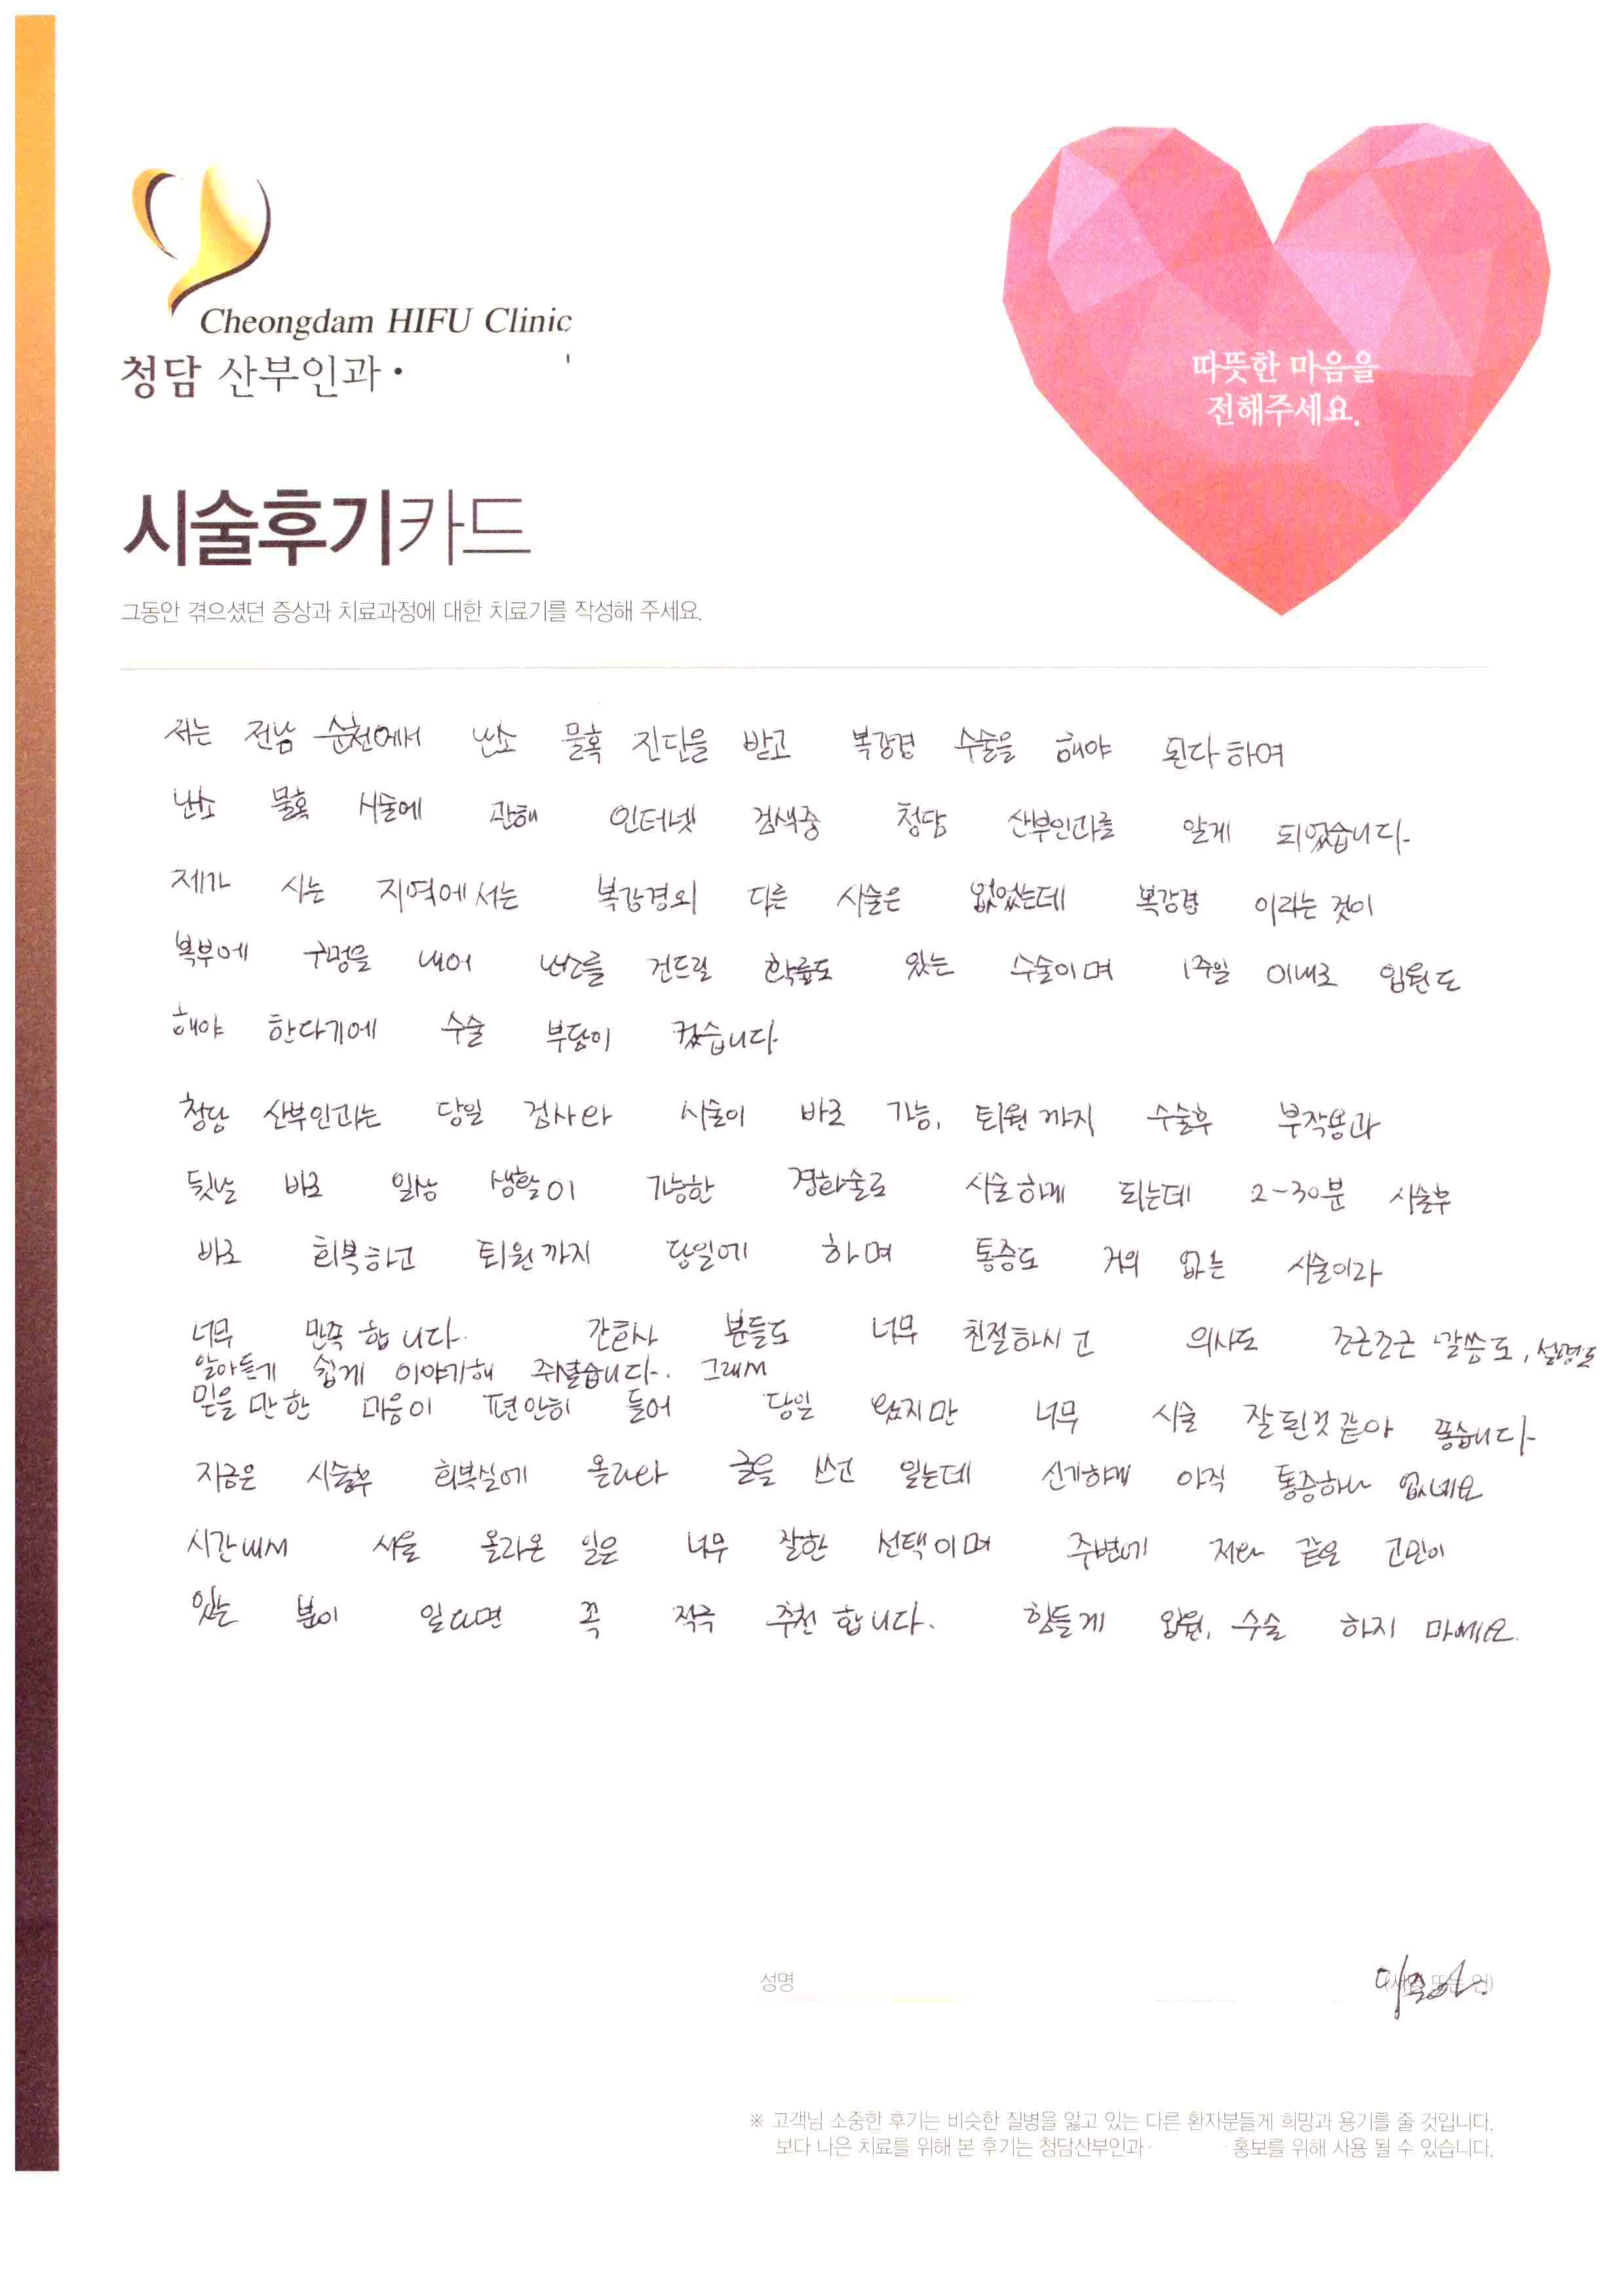 Cheongdam HIFU Clinic
청담 산부인과·
따뜻한 마음을
전해주세요.
시술후기카드
그동안 겪으셨던 증상과 치료과정에 대한 치료기를 작성해 주세요.
저는 전남 순천에서 난소 물혹 진단을 받고 복강경 수술을 해야 된다 하여
난소 물혹 시술에 관해 인터넷 검색중 청담 산부인과를 알게 되었습니다.
제가 사는 지역에서는 복강경외 다른 시술은 없었는데 복강경 이라는 것이
복부에 구멍을 내어 난소를 건드릴 확률도 있는 수술이며 1주일 이내로 입원도
해야 한다기에 수술 부담이 컸습니다
청담 산부인과는 당일 검사와 시술이 바로 가능, 퇴원 까지 수술후 부작용과
뒷날 바로 일상 생활이 가능한 경화술로 시술하게 되는데 2-30분 시술후
바로 회복하고 퇴원까지 당일에 하며 통증도 거의 없는 시술이라
너무 만족 합니다. 간호사 분들도 너무 친절하시고 의사도 조근조근 말씀도, 설명도
알아듣게 쉽게 이야기해 주셨습니다. 그래서
믿을 만한 마음이 편안히 들어 당일 왔지만 너무 시술 잘된것 같아 좋습니다.
지금은 시술후 회복실에 올라와 글을 쓰고 있는데 신기하게 아직 통증하나 없네요
시간내서 서울 올라온 일은 너무 잘한 선택이며 주변에 저와 같은 고민이
있는 분이 있다면 꼭 적극 추천 합니다. 힘들게 입원, 수술 하지 마세요.
성명
※ 고객님 소중한 후기는 비슷한 질병을 앓고 있는 다른 환자분들게 희망과 용기를 줄 것입니다.
보다 나은 치료를 위해 본 후기는 청담산부인과· · 홍보를 위해 사용 될 수 있습니다.